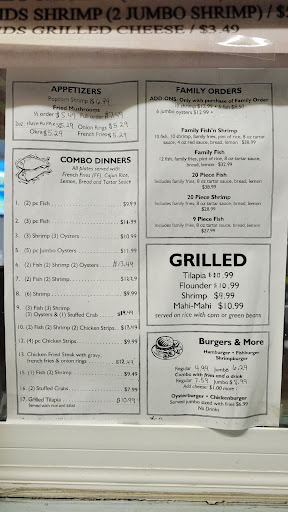 KIDS SHRIMP (2 JUMBO SHRIMP) / $
KIDS GRILLED CHEESE / $3.49
APPETIZERS
Popcorn Shrimp $6.99
Fried Mushrooms
½ order $5.49 Full order
Onion Rings $5.29
Okra $5.29 French Fries $5.29
COMBO DINNERS
All plates served with
French Fries (FF), Cajun Rice,
Lemon, Bread and Tartar Sauce
1. (2) pc Fish $9.99
2. (3) pc Fish $11.99
3. (3) Shrimp (3) Oysters $10.99
5. (5) pc Jumbo Oysters $11.99
6. (2) Fish (2) Shrimp (2) Oysters $13.49
7. (2) Fish (2) Shrimp
8. (6) Shrimp $13.99
9. (3) Fish (3) Shrimp
(3) Oysters & (1) Stuffed Crab $19.99
10. (2) Fish (2) Shrimp (2) Chicken Strips $13.49
12. (4) pc Chicken Strips $9.99
13. Chicken Fried Steak with gravy,
french fries & onion rings $12.49
15. (1) Fish (2) Shrimp $9.49
16. (2) Stuffed Crabs $7.99
17. Grilled Tilapia $10.99
Served with rice and salad
FAMILY ORDERS
ADD-ONS: Only with purchase of Family Order
6 jumbo oysters $12.99
Family Fish'n Shrimp
10 fish, 10 shrimp, family fries, pint of rice, 8 oz tartar
sauce, 4 oz red sauce, bread, lemon $38.99
Family Fish
12 fish, family fries, pint of rice, 8 oz tartar sauce,
bread, lemon $32.99
20 Piece Fish
Includes family fries, 8 oz tartar sauce, bread, lemon
$38.99
20 Piece Shrimp
Includes family fries, 8 oz tartar sauce, bread, lemon
$28.99
9 Piece Fish
Includes family fries, 8 oz tartar sauce, bread, lemon
$27.99
GRILLED
Tilapia $10.99
Flounder $10.99
Shrimp $9.99
Mahi-Mahi $10.99
served on rice with corn or green beans
Burgers & More
Hamburger · Fishburger
Shrimpburger
Regular 4.99 Jumbo 6.29
Combo with fries and a drink
Regular 7.59 Jumbo
Add cheese: $1.00 more
Oysterburger · Chickenburger
Served jumbo sized with fries $6.99
No Drinks